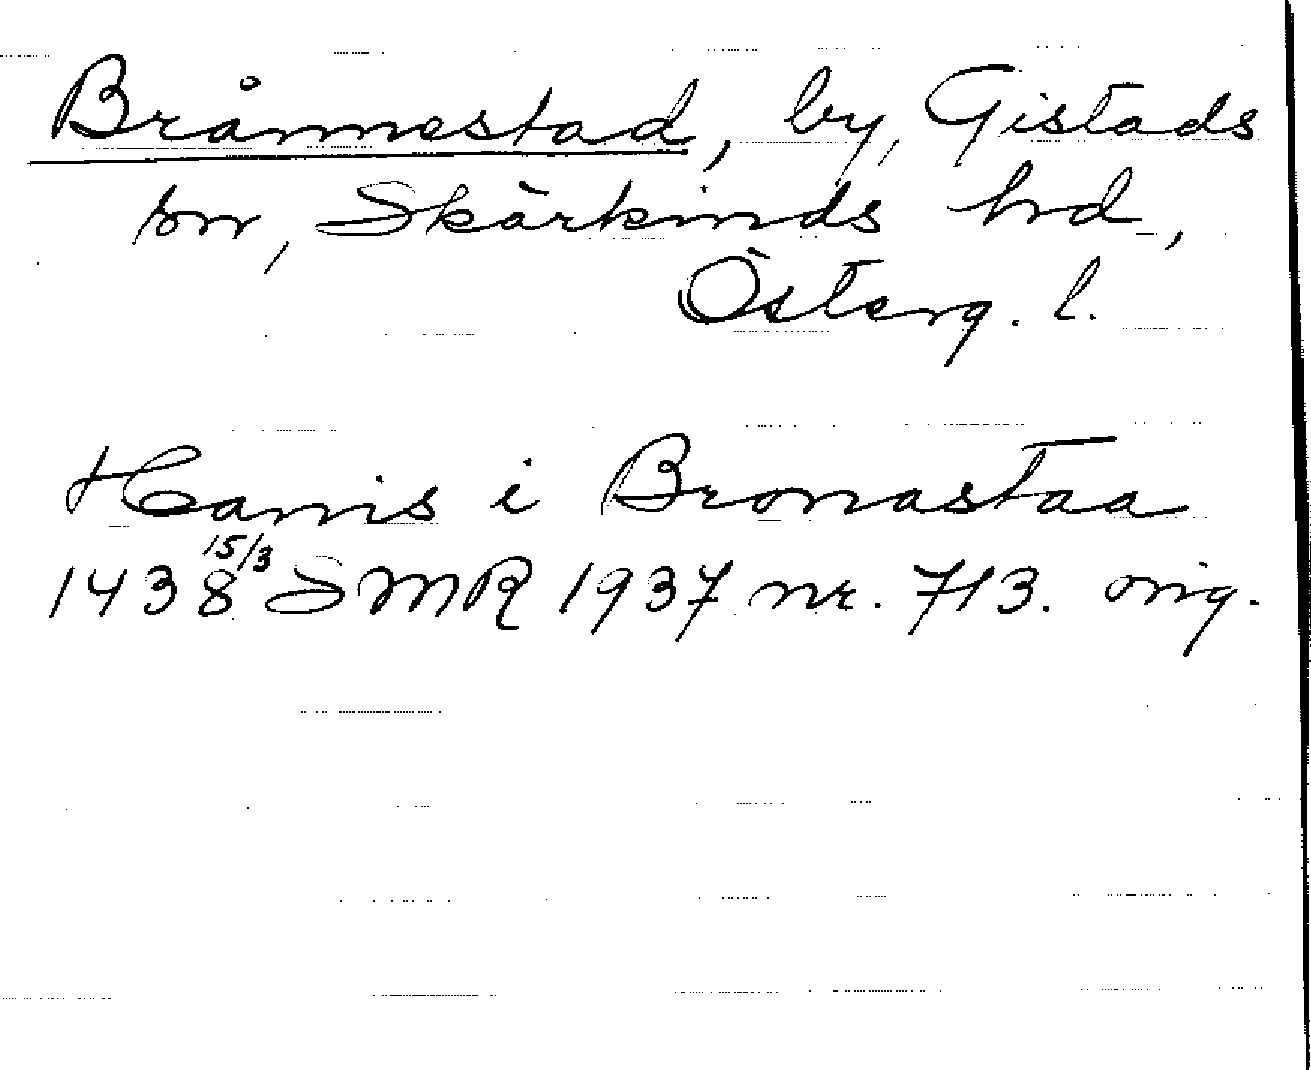 Brånnestad, by, Gistads
sn, Skärkinds hrd,
Österg. l.
Hannis i Bronastaa
1438 15/3 SMR 1937 nr. 713. orig.